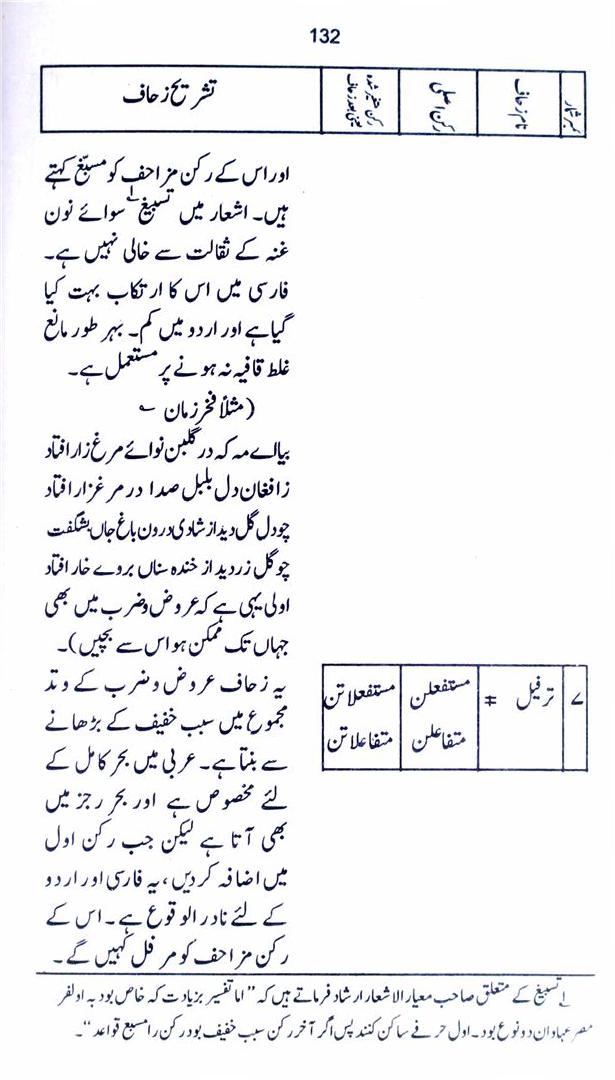 132
نمبر شمار
نام زحاف
رکن اصلی
رکن متغیر شدہ
یعنی بعد زحاف
تشریح زحاف
اور اس کے رکن مزاحف کو مسبّغ کہتے
ہیں۔ اشعار میں تسبیغ۱ سوائے نون
غنہ کے ثقالت سے خالی نہیں ہے۔
فارسی میں اس کا ارتکاب بہت کیا
گیا ہے اور اردو میں کم۔ بہر طور مانع
غلط قافیہ نہ ہونے پر مستعمل ہے۔
(مثلاً فخر زمان ؎
بیا اے مہ کہ در گلبن نوائے مرغ زار افتاد
ز افغان دل بلبل صدا در مرغزار افتاد
چو دل گل دید از شادی درون باغ جاں بشگفت
چو گل زر دید از خندہ سناں بروے خار افتاد
اولی یہی ہے کہ عروض و ضرب میں بھی
جہاں تک ممکن ہو اس سے بچیں)۔
۷
ترفیل ‡
مستفعلن
متفاعلن
مستفعلاتن
متفاعلاتن
یہ زحاف عروض و ضرب کے وتد
مجموع میں سبب خفیف کے بڑھانے
سے بنتا ہے۔ عربی میں بحر کامل کے
لئے مخصوص ہے اور بحر رجز میں
بھی آتا ہے لیکن جب رکن اول
میں اضافہ کر دیں، یہ فارسی اور اردو
کے لئے نادر الوقوع ہے۔ اس کے
رکن مزاحف کو مرفل کہیں گے۔
۱ تسبیغ کے متعلق صاحب معیار الاشعار ارشاد فرماتے ہیں کہ ”اما تفسیر بزیادت کہ خاص بود بہ
مصرعہا دان دو نوع بود۔ اول حرفے ساکن کنند پس اگر آخر رکن سبب خفیف بود رکن را مسبع قواعد“۔